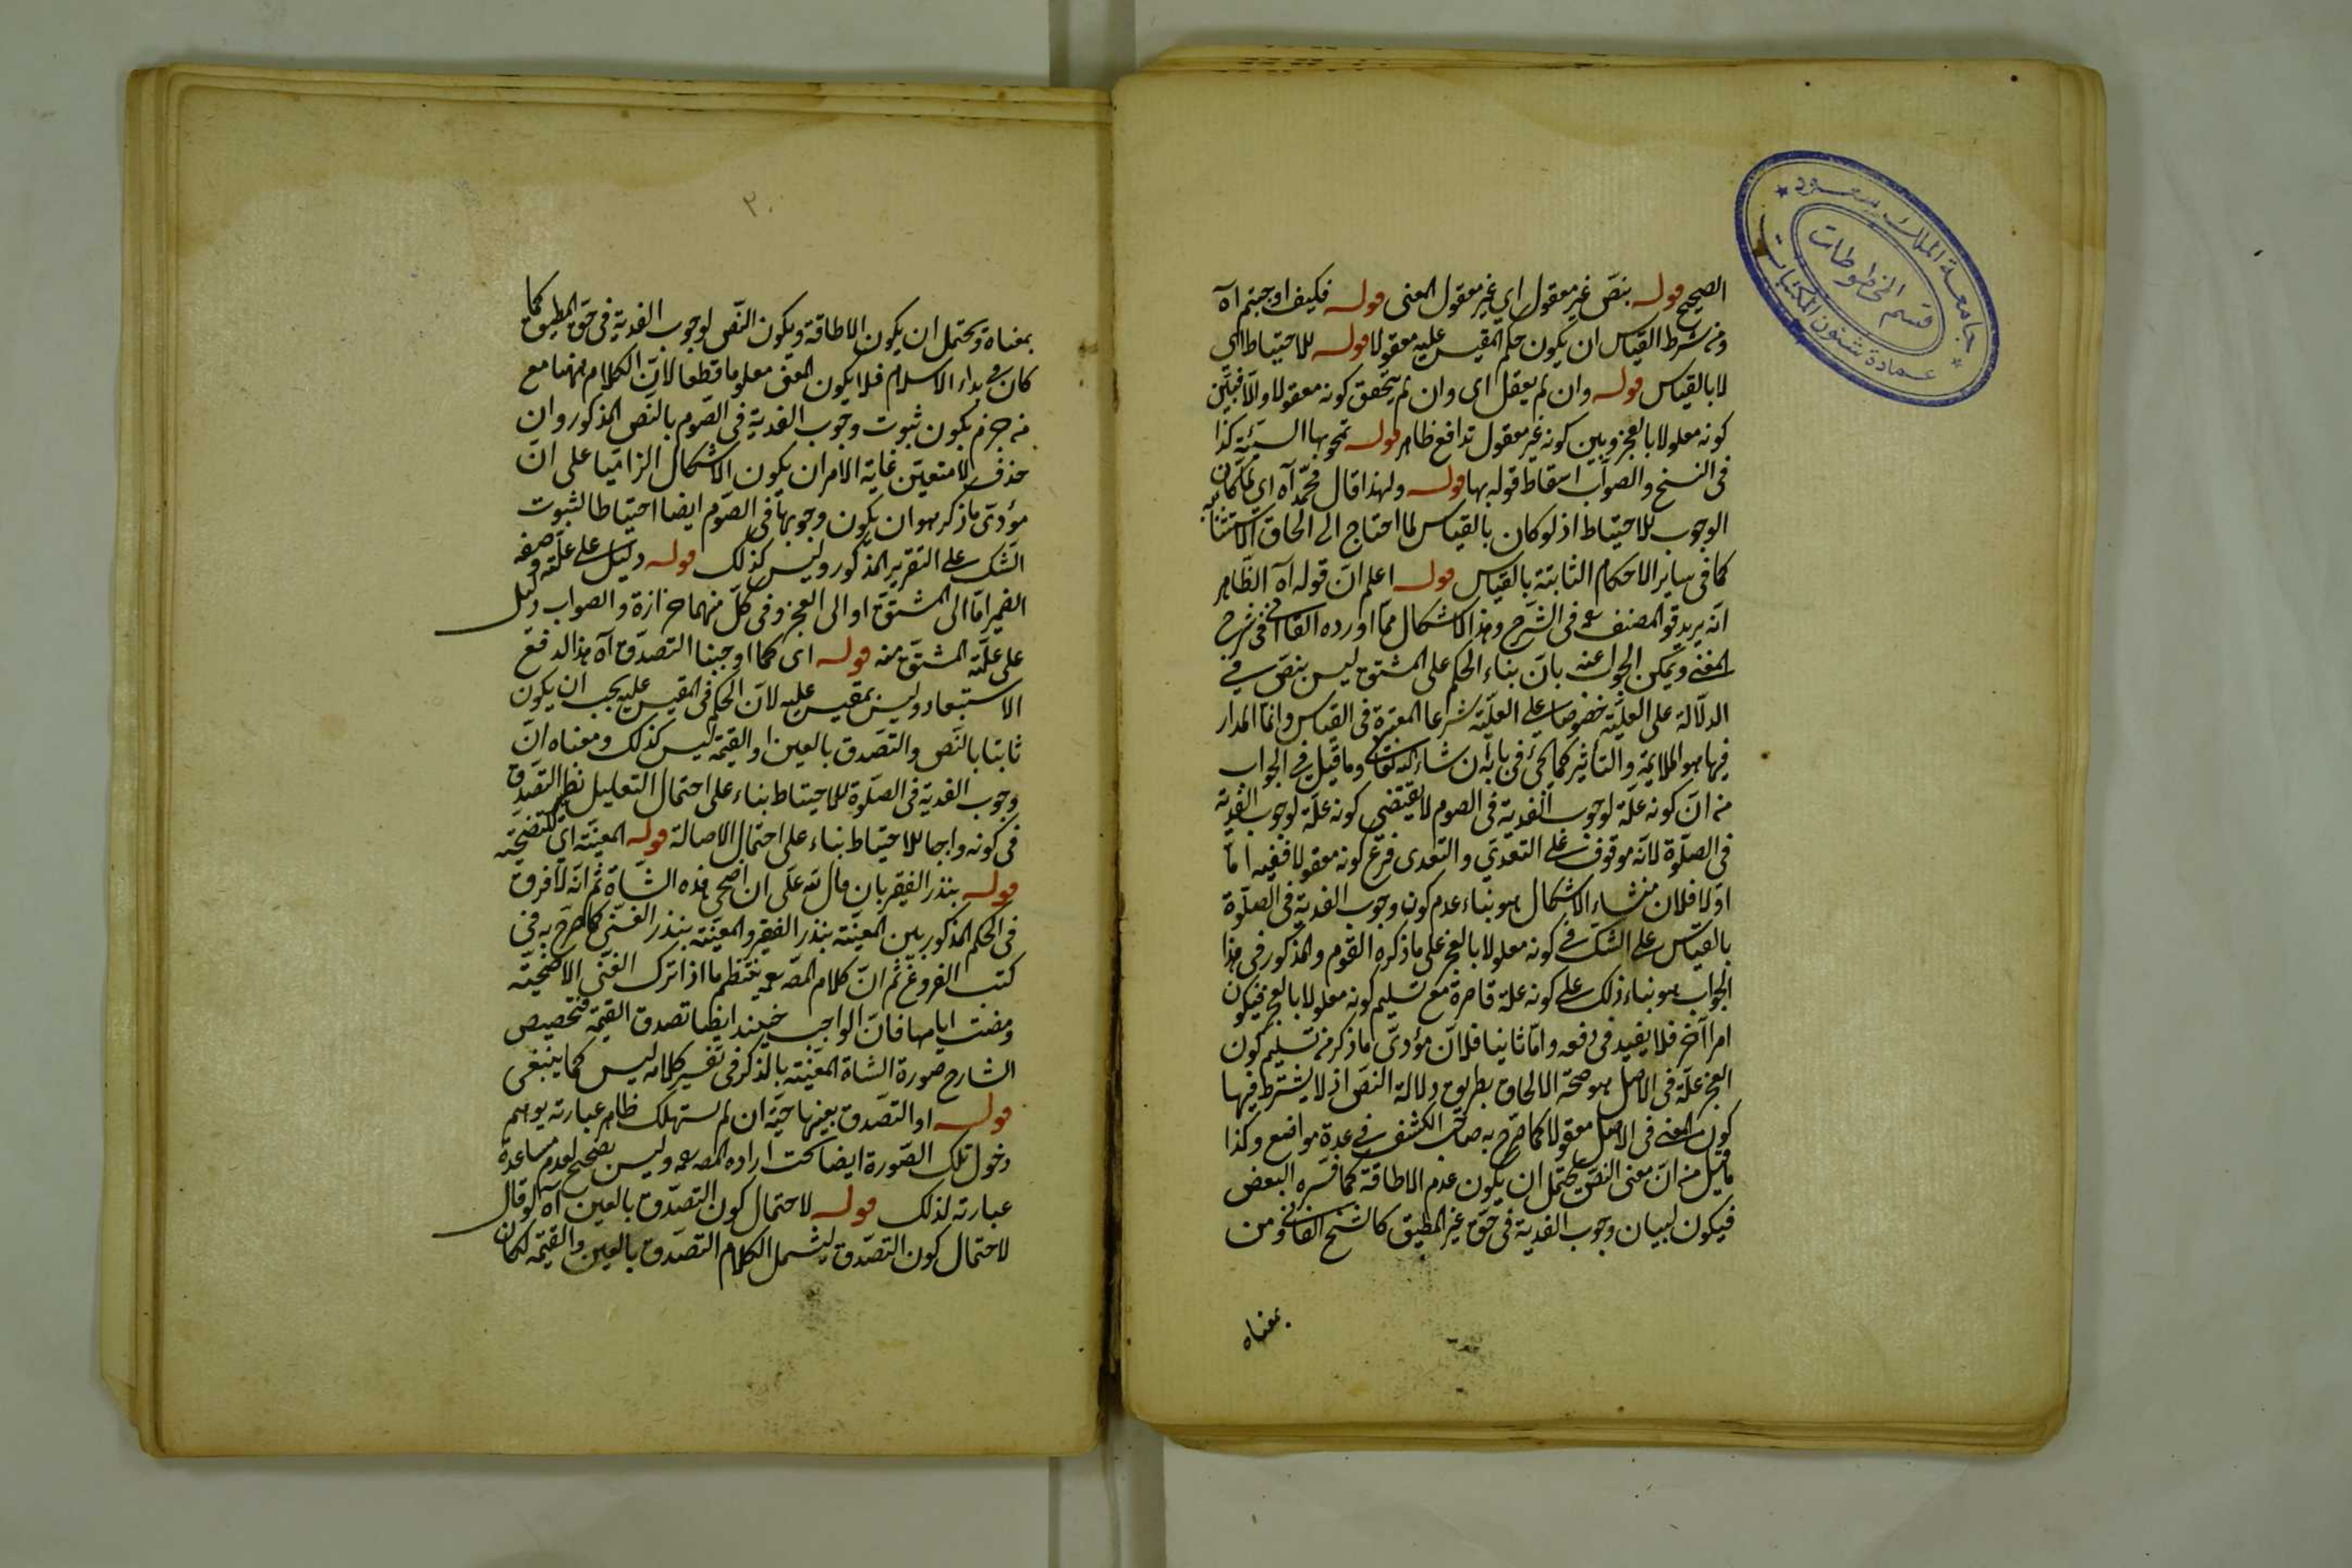 الصحيح قوله بنص غير معقول اي غير معقول المعنى قوله فكيف اوجبتم اه
ومن شرط القياس ان يكون حكم المقيس عليه معقولا قوله للاحتياط اي
لا بالقياس قوله وان لم يعقل اى وان لم يتحقق كونه معقولا والا فبين
كونه معلولا بالعجز وبين كونه غير معقول تدافع ظاهر قوله تمحو بها السيئة كذا
فى النسخ والصواب اسقاط قوله بها قوله ولهذا قال محمد اه اى
الوجوب للاحتياط اذ لو كان بالقياس لما احتاج الى الحاق الاستثناء به
كما فى ساير الاحكام الثابتة بالقياس قوله اعلم ان قوله اه الظاهر
انه يريد المصنف فى الشرح وهذا الاشكال مما اورده فى شرح
المغنى ويمكن الجواب عنه بان بناء الحكم على المشتق ليس بنص في
الدلالة على العلية خصوصا على العلية شرعا المعتبرة فى القياس وانما المدار
فيها هو الملايمة والتأثير كما يجئ فى بابه ان شاء الله تعالى وما قيل في الجواب
من ان كونه علة لوجوب الفدية فى الصوم لا يقتضى كونه علة لوجوب الفدية
فى الصلوة لانه موقوف على التعدى والتعدى فرع كونه معقولا ففيه اما
اولا فلان منشاء الاشكال هو بناء عدم كون وجوب الفدية فى الصلوة
بالقياس على الشك في كونه معلولا بالعجز على ما ذكره القوم والمذكور فى هذا
الجواب هو بناء ذلك على كونه علة قاصرة مع تسليم كونه معلولا بالعجز فيكون
امرا آخر فلا يفيد فى دفعه واما ثانيا فلان مؤدى ما ذكر من تسليم كون
العجز علة فى الاصل هو صحة الالحاق بطريق دلالة النص اذ لا يشترط فيها
كون المعنى فى الاصل معقولا كما صرح به صاحب الكشف في عدة مواضع وكذا
ما قيل من ان معنى النص يحتمل ان يكون عدم الاطاقة كما فسره البعض
فيكون لبيان وجوب الفدية فى حق غير المطيق كالشيخ الفانى ومن
بمعناه
٢٠
بمعناه ويحتمل ان يكون الاطاقة ويكون النص لوجوب الفدية فى حق المطيق كما
كان في بداء الاسلام فلا يكون المعنى معلوما قطعا لان الكلام ههنا مع
من جزم بكون ثبوت وجوب الفدية فى الصوم بالنص المذكور وان
حذف لا متعين غاية الامر ان يكون الاشكال الزاميا على ان
مؤدى ما ذكر هو ان يكون وجوبها فى الصوم ايضا احتياطا لثبوت
الشك على التقرير المذكور وليس كذلك قوله دليل على علته
الضمير اما الى المشتق او الى العجز وفى كل منهما حزازة والصواب دليل
على علية المشتق منه قوله اى كما اوجبنا التصدق اه هذا لدفع
الاستبعاد وليس بمقيس عليه لان الحكم فى المقيس عليه يجب ان يكون
ثابتا بالنص والتصدق بالعين او القيمة ليس كذلك ومعناه ان
وجوب الفدية فى الصلوة للاحتياط بناء على احتمال التعليل نظير التصدق
فى كونه واجبا للاحتياط بناء على احتمال الاصالة قوله المعينة اى للتضحية
قوله بنذر الفقير بان قال لله على ان اضحى هذه الشاة ثم انه لا فرق
فى الحكم المذكور بين المعينة بنذر الفقير والمعينة بنذر الغنى كما صرح به فى
كتب الفروع ثم ان كلام المص ينتظم ما اذا ترك الغنى الاضحية
ومضت ايامها فان الواجب حينئذ ايضا تصدق القيمة فتخصيص
الشارح صورة الشاة المعينة بالذكر فى تفسير كلامه ليس كما ينبغى
قوله او التصدق بعينها حية ان لم تستهلك ظاهر عبارته يوهم
دخول تلك الصورة ايضا تحت اراده المص وليس بصحيح لعدم مساعدة
عبارته لذلك قوله لاحتمال كون التصدق بالعين اه لو قال
لاحتمال كون التصدق ليشمل الكلام التصدق بالعين والقيمة لكان
جامعة الملك سعود
قسم المخطوطات
عمادة شئون المكتبات